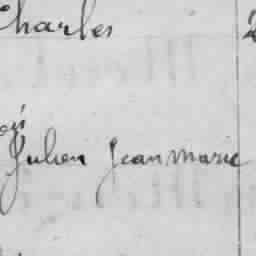 Charles
Julien Jean Marie